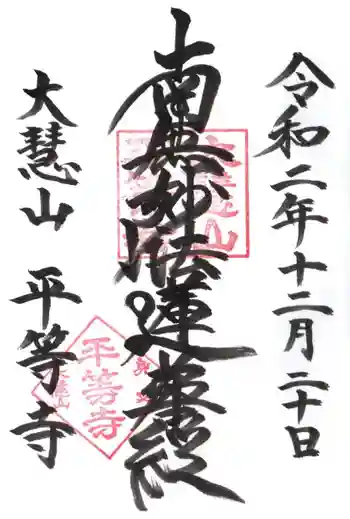 令和二年十二月二十日
南無妙法蓮華経
大慧山 平等寺
大慧山
平等寺